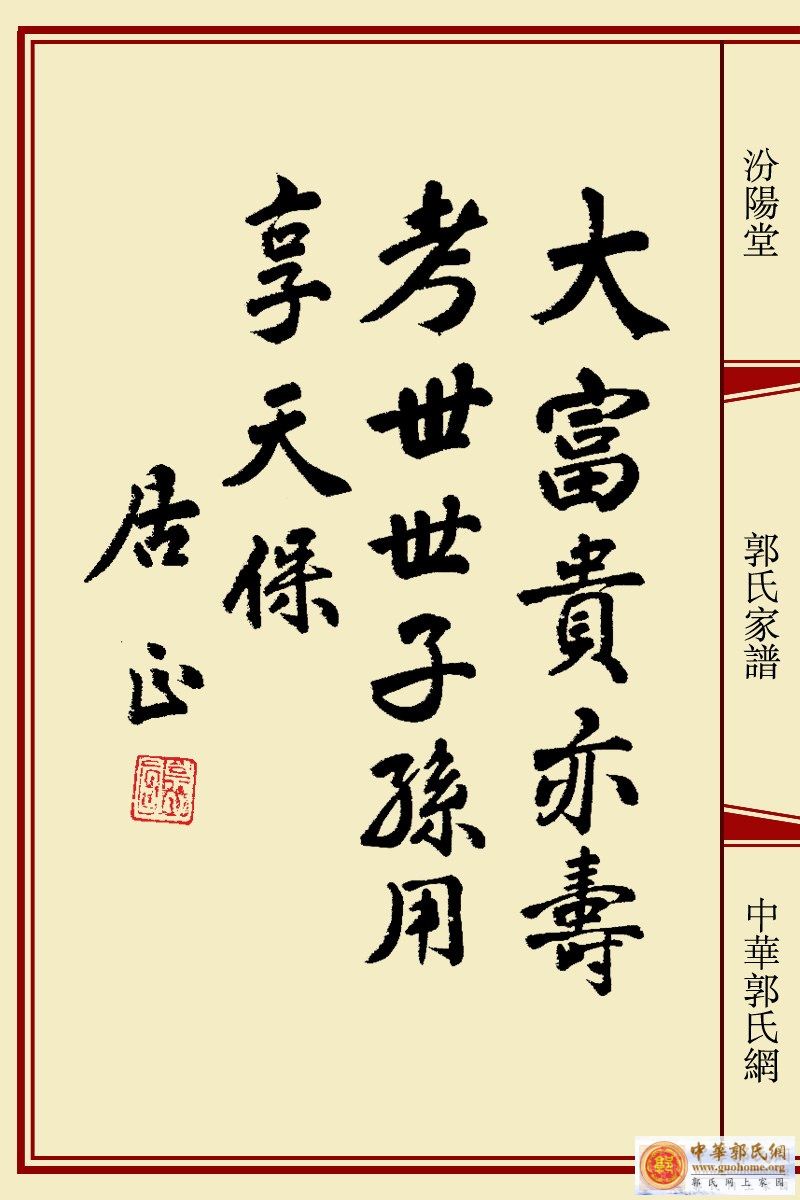 汾陽堂
郭氏家譜
中華郭氏網
大富貴亦壽
考世世子孫用
享天保
居正
中華郭氏網
www.guohome.org
郭氏网上家园